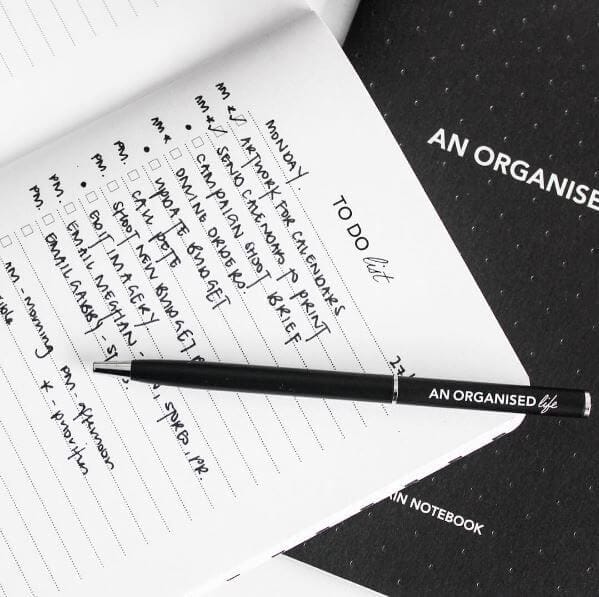 TO DO list
MONDAY.
AM * ✓ ARTWORK FOR CALENDARS
AM * ✓ SEND CALENDARS TO PRINT
• CAMPAIGN SHOOT BRIEF
AM * ONLINE ORDERS.
• UPDATE BUDGET
PM. CALL PETE
PM. SHOOT NEW BUDGET
• EDIT IMAGERY
PM. EMAIL MEGHAN - STORES, PR.
PM. EMAIL GABBY -
AM - morning PM - afternoon
* - priorities
AN ORGANISED life
AN ORGANISE
IN NOTEBOOK